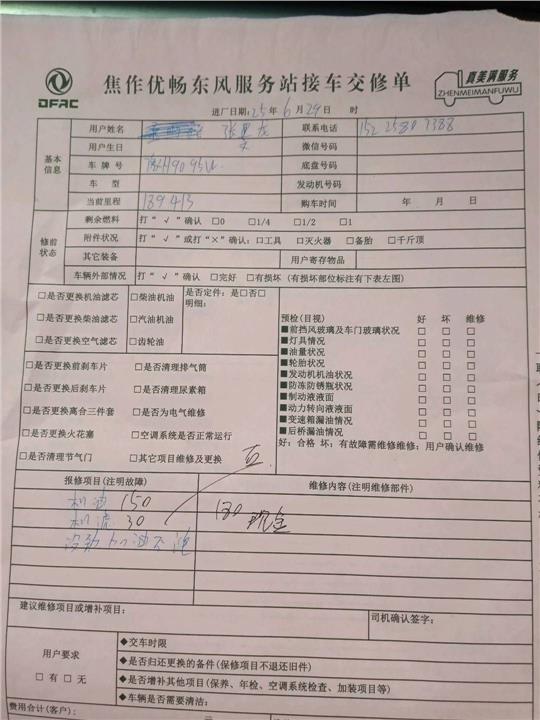 DFAC
焦作优畅东风服务站接车交修单
真美满服务
ZHENMEIMANFUWU
进厂日期:25年6月29日 时
基本信息
用户姓名 张 龙 联系电话 152 2580 7388
用户生日 微信号码
车牌号 底盘号码
车型 发动机号码
当前里程 139413 购车时间 年 月 日
修前状态
剩余燃料 打“√”确认 □0 □1/4 □1/2 □1
附件状况 打“√”或打“×”确认:□工具 □灭火器 □备胎 □千斤顶
其它装备 用户寄存物品
车辆外部情况 打“√”确认 □完好 □有损坏(有损坏部位标注有下表左图)
□是否更换机油滤芯 □柴油机油 是否定件:是□否□
明细:
□是否更换柴油滤芯 □汽油机油
□是否更换空气滤芯 □齿轮油
□是否更换前刹车片 □是否清理排气筒
□是否更换后刹车片 □是否清理尿素箱
□是否更换离合三件套 □是否为电气维修
□是否更换火花塞 □空调系统是否正常运行
□是否清理节气门 □其它项目维修及更换
预检(目视) 好 坏 维修
■前挡风玻璃及车门玻璃状况 □ □ □
■灯具情况 □ □ □
■油量状况 □ □ □
■轮胎状况 □ □ □
■发动机机油状况 □ □ □
■防冻防锈瓶状况 □ □ □
■制动液液面 □ □ □
■动力转向液液面 □ □ □
■变速箱漏油情况 □ □ □
■后桥漏油情况 □ □ □
好:合格 坏:有故障需维修维修:用户确认维修
报修项目(注明故障) 维修内容(注明维修部件)
机油 150
机滤 30 180 现金
建议维修项目或增补项目: 司机确认签字:
用户要求
□有 □无
◆交车时限
◆是否归还更换的备件(保修项目不退还旧件)
◆是否增补其他项目(保养、年检、空调系统检查、加装项目等)
◆车辆是否需要清洁:
费用合计(客户): 元